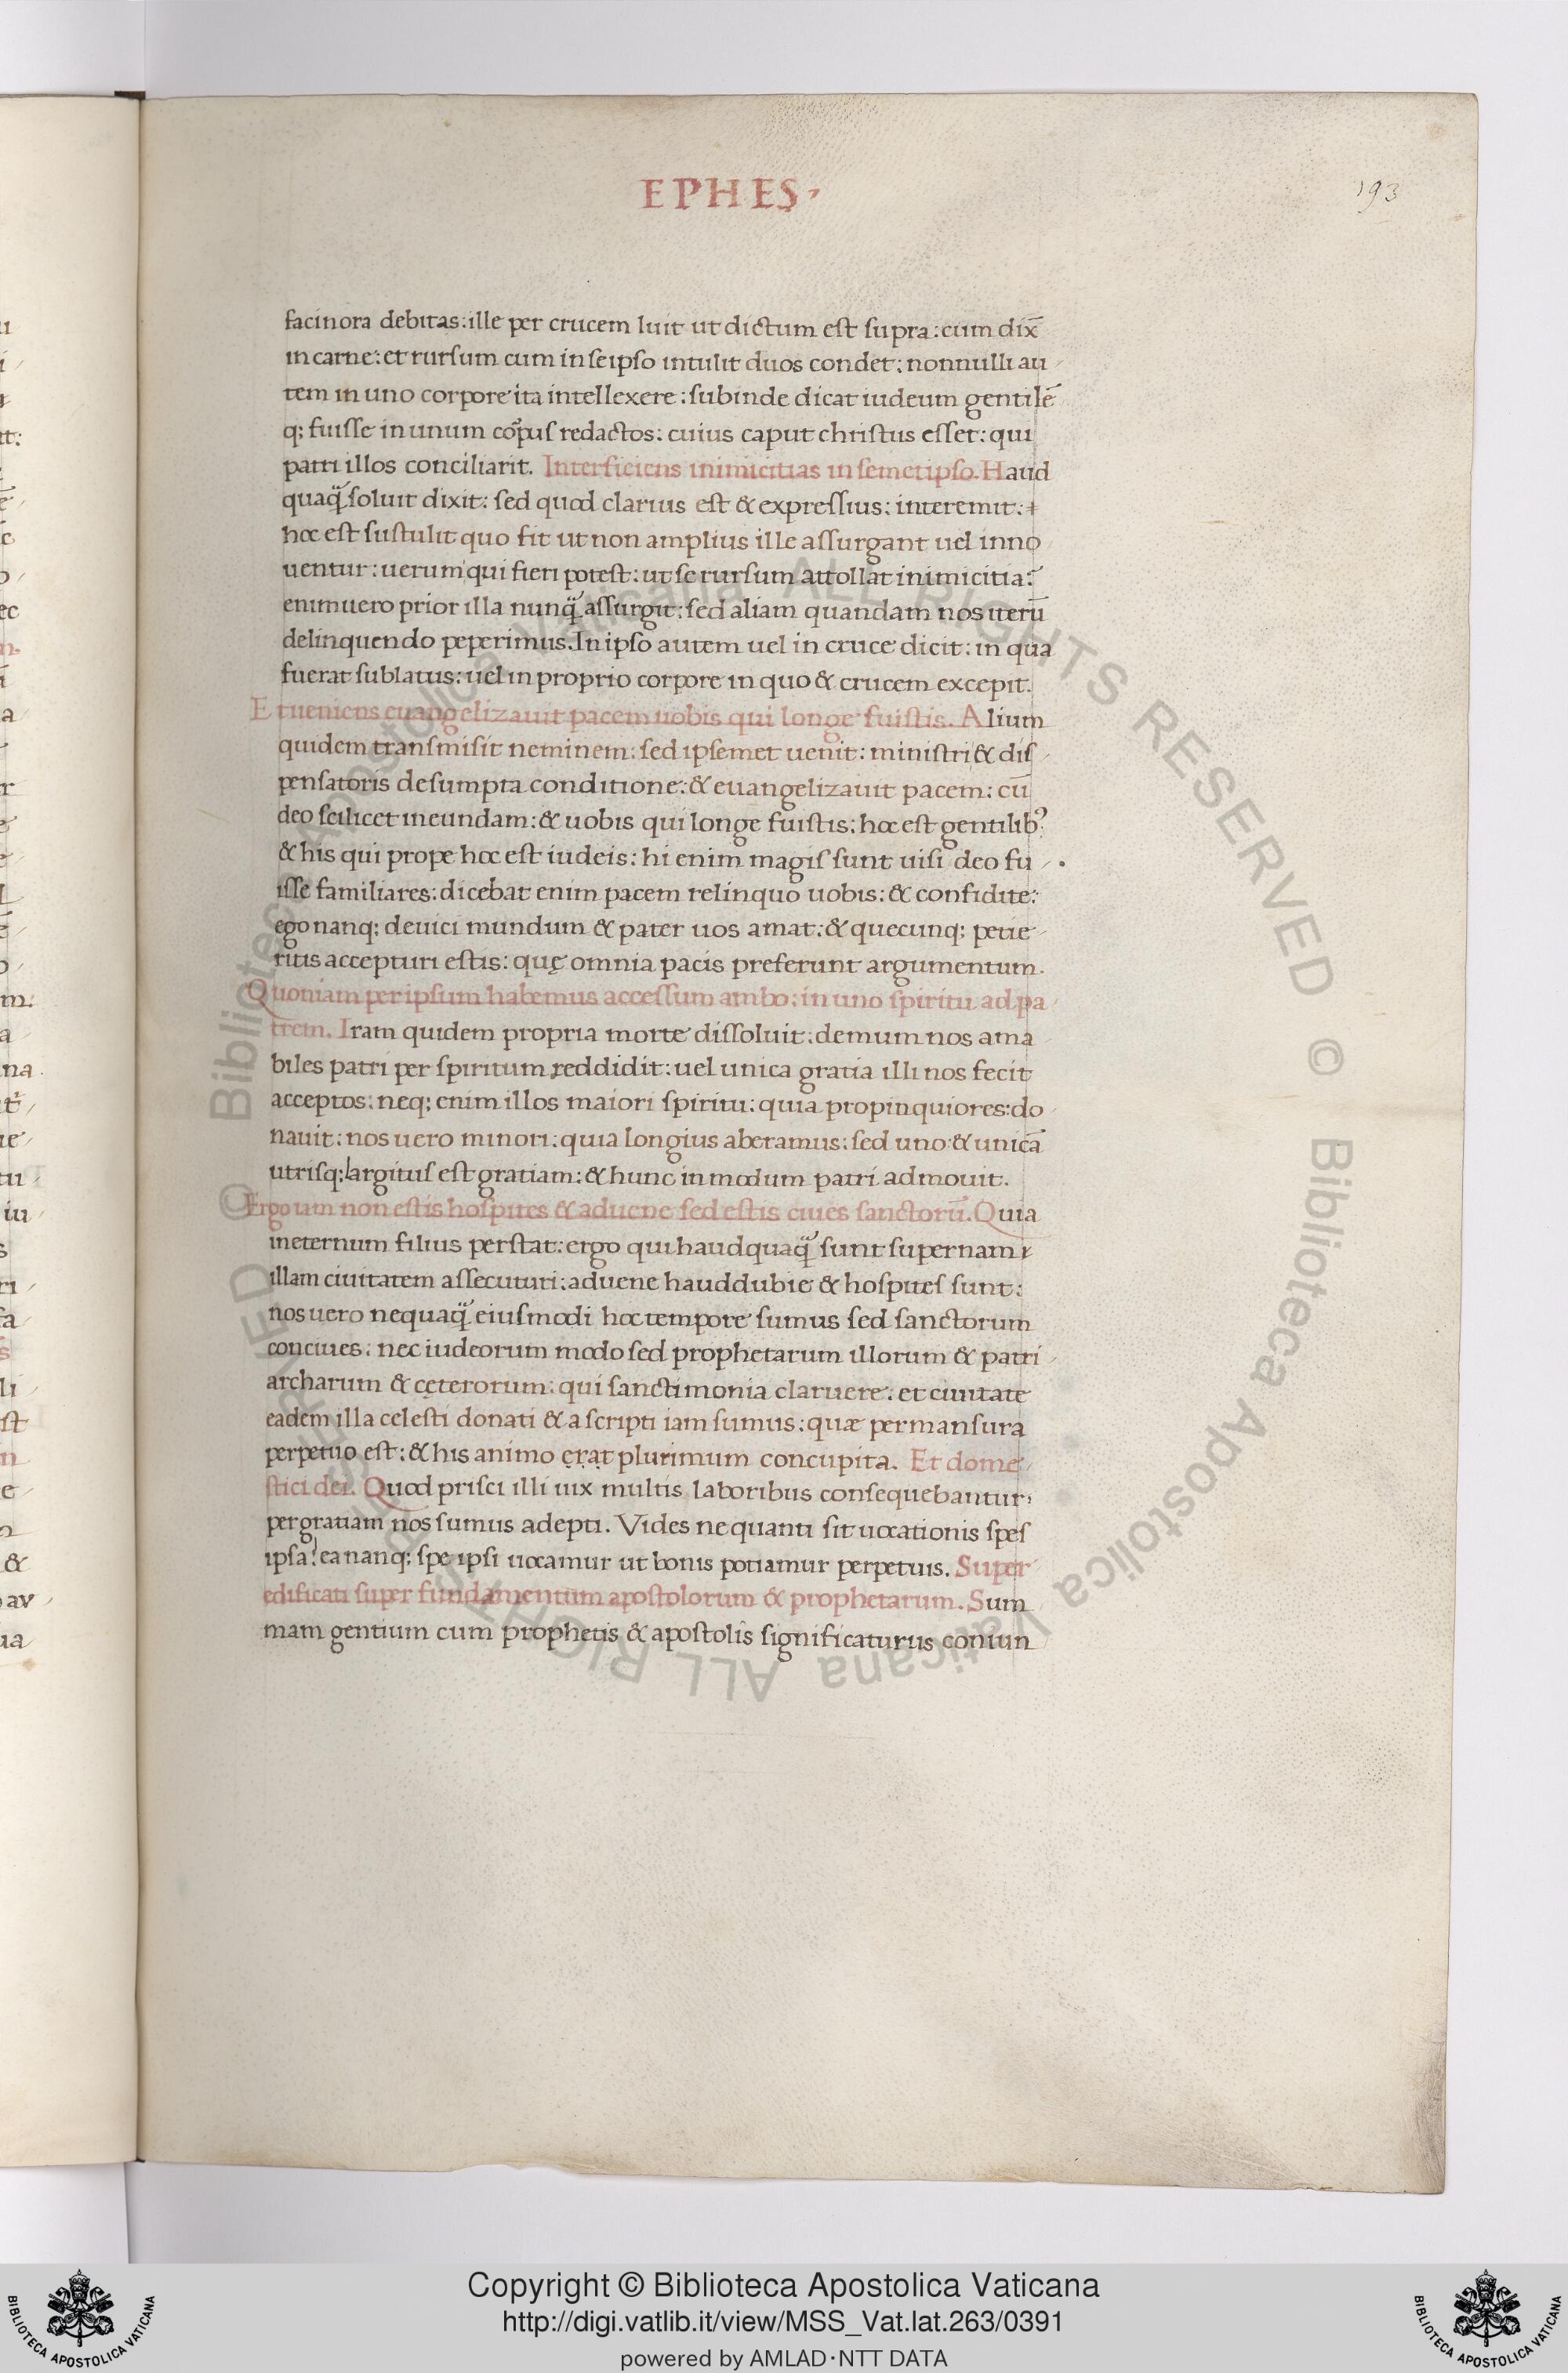 EPHES.
193
facinora debitas: ille per crucem luit ut dictum est supra: cum dix̄
in carne: et rursum cum in seipso intulit duos condet: nonnulli au
tem in uno corpore ita intellexere: subinde dicat iudeum gentilē
q; fuisse in unum corpus redactos: cuius caput christus esset: qui
patri illos conciliarit. Interficiens inimicitias in semetipso. Haud
quaq̃ soluit dixit: sed quod clarius est & expressius: interemit:
hoc est sustulit quo fit ut non amplius ille assurgant uel inno
uentur: uerum qui fieri potest: ut se rursum attollat inimicitia?
enimuero prior illa nunq̃ assurgit: sed aliam quandam nos iterū
delinquendo peperimus. In ipso autem uel in cruce dicit: in qua
fuerat sublatus: uel in proprio corpore in quo & crucem excepit.
Et ueniens euangelizauit pacem uobis qui longe fuistis. Alium
quidem transmisit neminem: sed ipsemet uenit: ministri & dis
pensatoris desumpta conditione: & euangelizauit pacem: cū
deo scilicet ineundam: & uobis qui longe fuistis: hoc est gentilib⁹:
& his qui prope hoc est iudeis: hi enim magis sunt uisi deo fu
isse familiares: dicebat enim pacem relinquo uobis: & confidite:
ego nanq; deuici mundum & pater uos amat: & quecunq; petie
ritis accepturi estis: quę omnia pacis preferunt argumentum.
Quoniam per ipsum habemus accessum ambo: in uno spiritu ad pa
trem. Iram quidem propria morte dissoluit: demum nos ama
biles patri per spiritum reddidit: uel unica gratia illi nos fecit
acceptos: neq; enim illos maiori spiritu: quia propinquiores: do
nauit: nos uero minori: quia longius aberamus: sed uno & unicā
utrisq; largitus est gratiam: & hunc in modum patri admouit.
Ergo iam non estis hospites & aduene sed estis ciues sanctorū. Quia
ineternum filius perstat: ergo qui haudquaq̃ sunt supernam
illam ciuitatem assecuturi: aduene hauddubie & hospites sunt:
nos uero nequaq̃ eiusmodi hoc tempore sumus sed sanctorum
conciues: nec iudeorum modo sed prophetarum illorum & patri
archarum & cęterorum: qui sanctimonia claruere: et ciuitate
eadem illa celesti donati & ascripti iam sumus: quæ permansura
perpetuo est: & his animo erat plurimum concupita. Et dome
stici dei. Quod prisci illi uix multis laboribus consequebantur:
per gratiam nos sumus adepti. Vides ne quanti sit uocationis spes
ipsa? ea nanq; spe ipsi uocamur ut bonis potiamur perpetuis. Super
edificati super fundamentum apostolorum & prophetarum. Sum
mam gentium cum prophetis & apostolis significaturus coniun
Copyright © Biblioteca Apostolica Vaticana
http://digi.vatlib.it/view/MSS_Vat.lat.263/0391
powered by AMLAD·NTT DATA